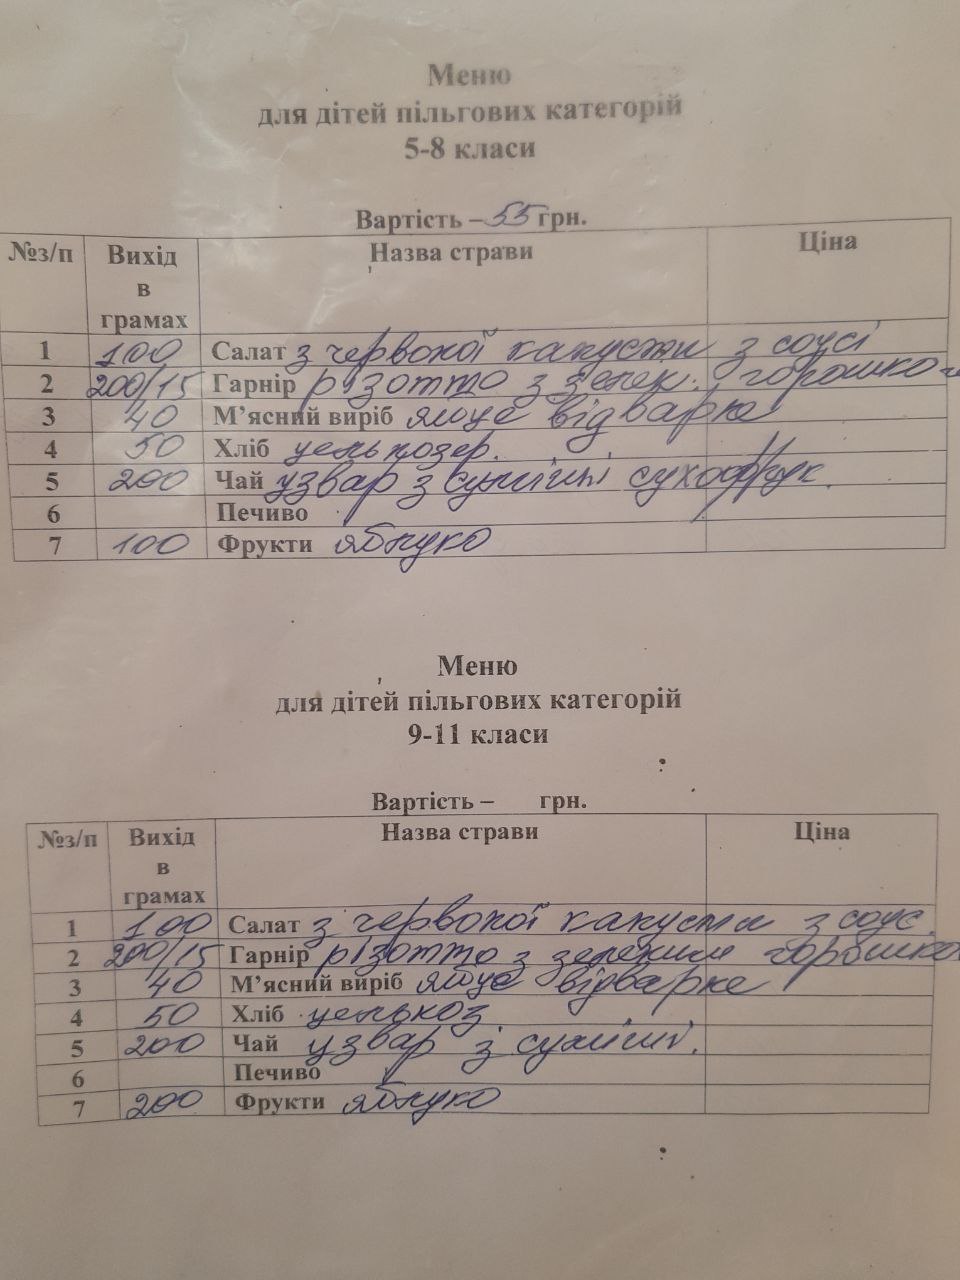 Меню
для дітей пільгових категорій
5-8 класи
Вартість – 55 грн.
№з/п Вихід в грамах Назва страви Ціна
1 100 Салат з червоної капусти з соусі
2 200/15 Гарнір різотто з зелен. горошко
3 40 М’ясний виріб яйце відварне
4 50 Хліб цельнозер.
5 200 Чай узвар з суміші сухофрук.
6 Печиво
7 100 Фрукти яблуко
Меню
для дітей пільгових категорій
9-11 класи
Вартість – грн.
№з/п Вихід в грамах Назва страви Ціна
1 100 Салат з червоної капусти з соус.
2 200/15 Гарнір різотто з зеленим горошко
3 40 М’ясний виріб яйце відварне
4 50 Хліб цельноз.
5 200 Чай узвар з суміші.
6 Печиво
7 200 Фрукти яблуко